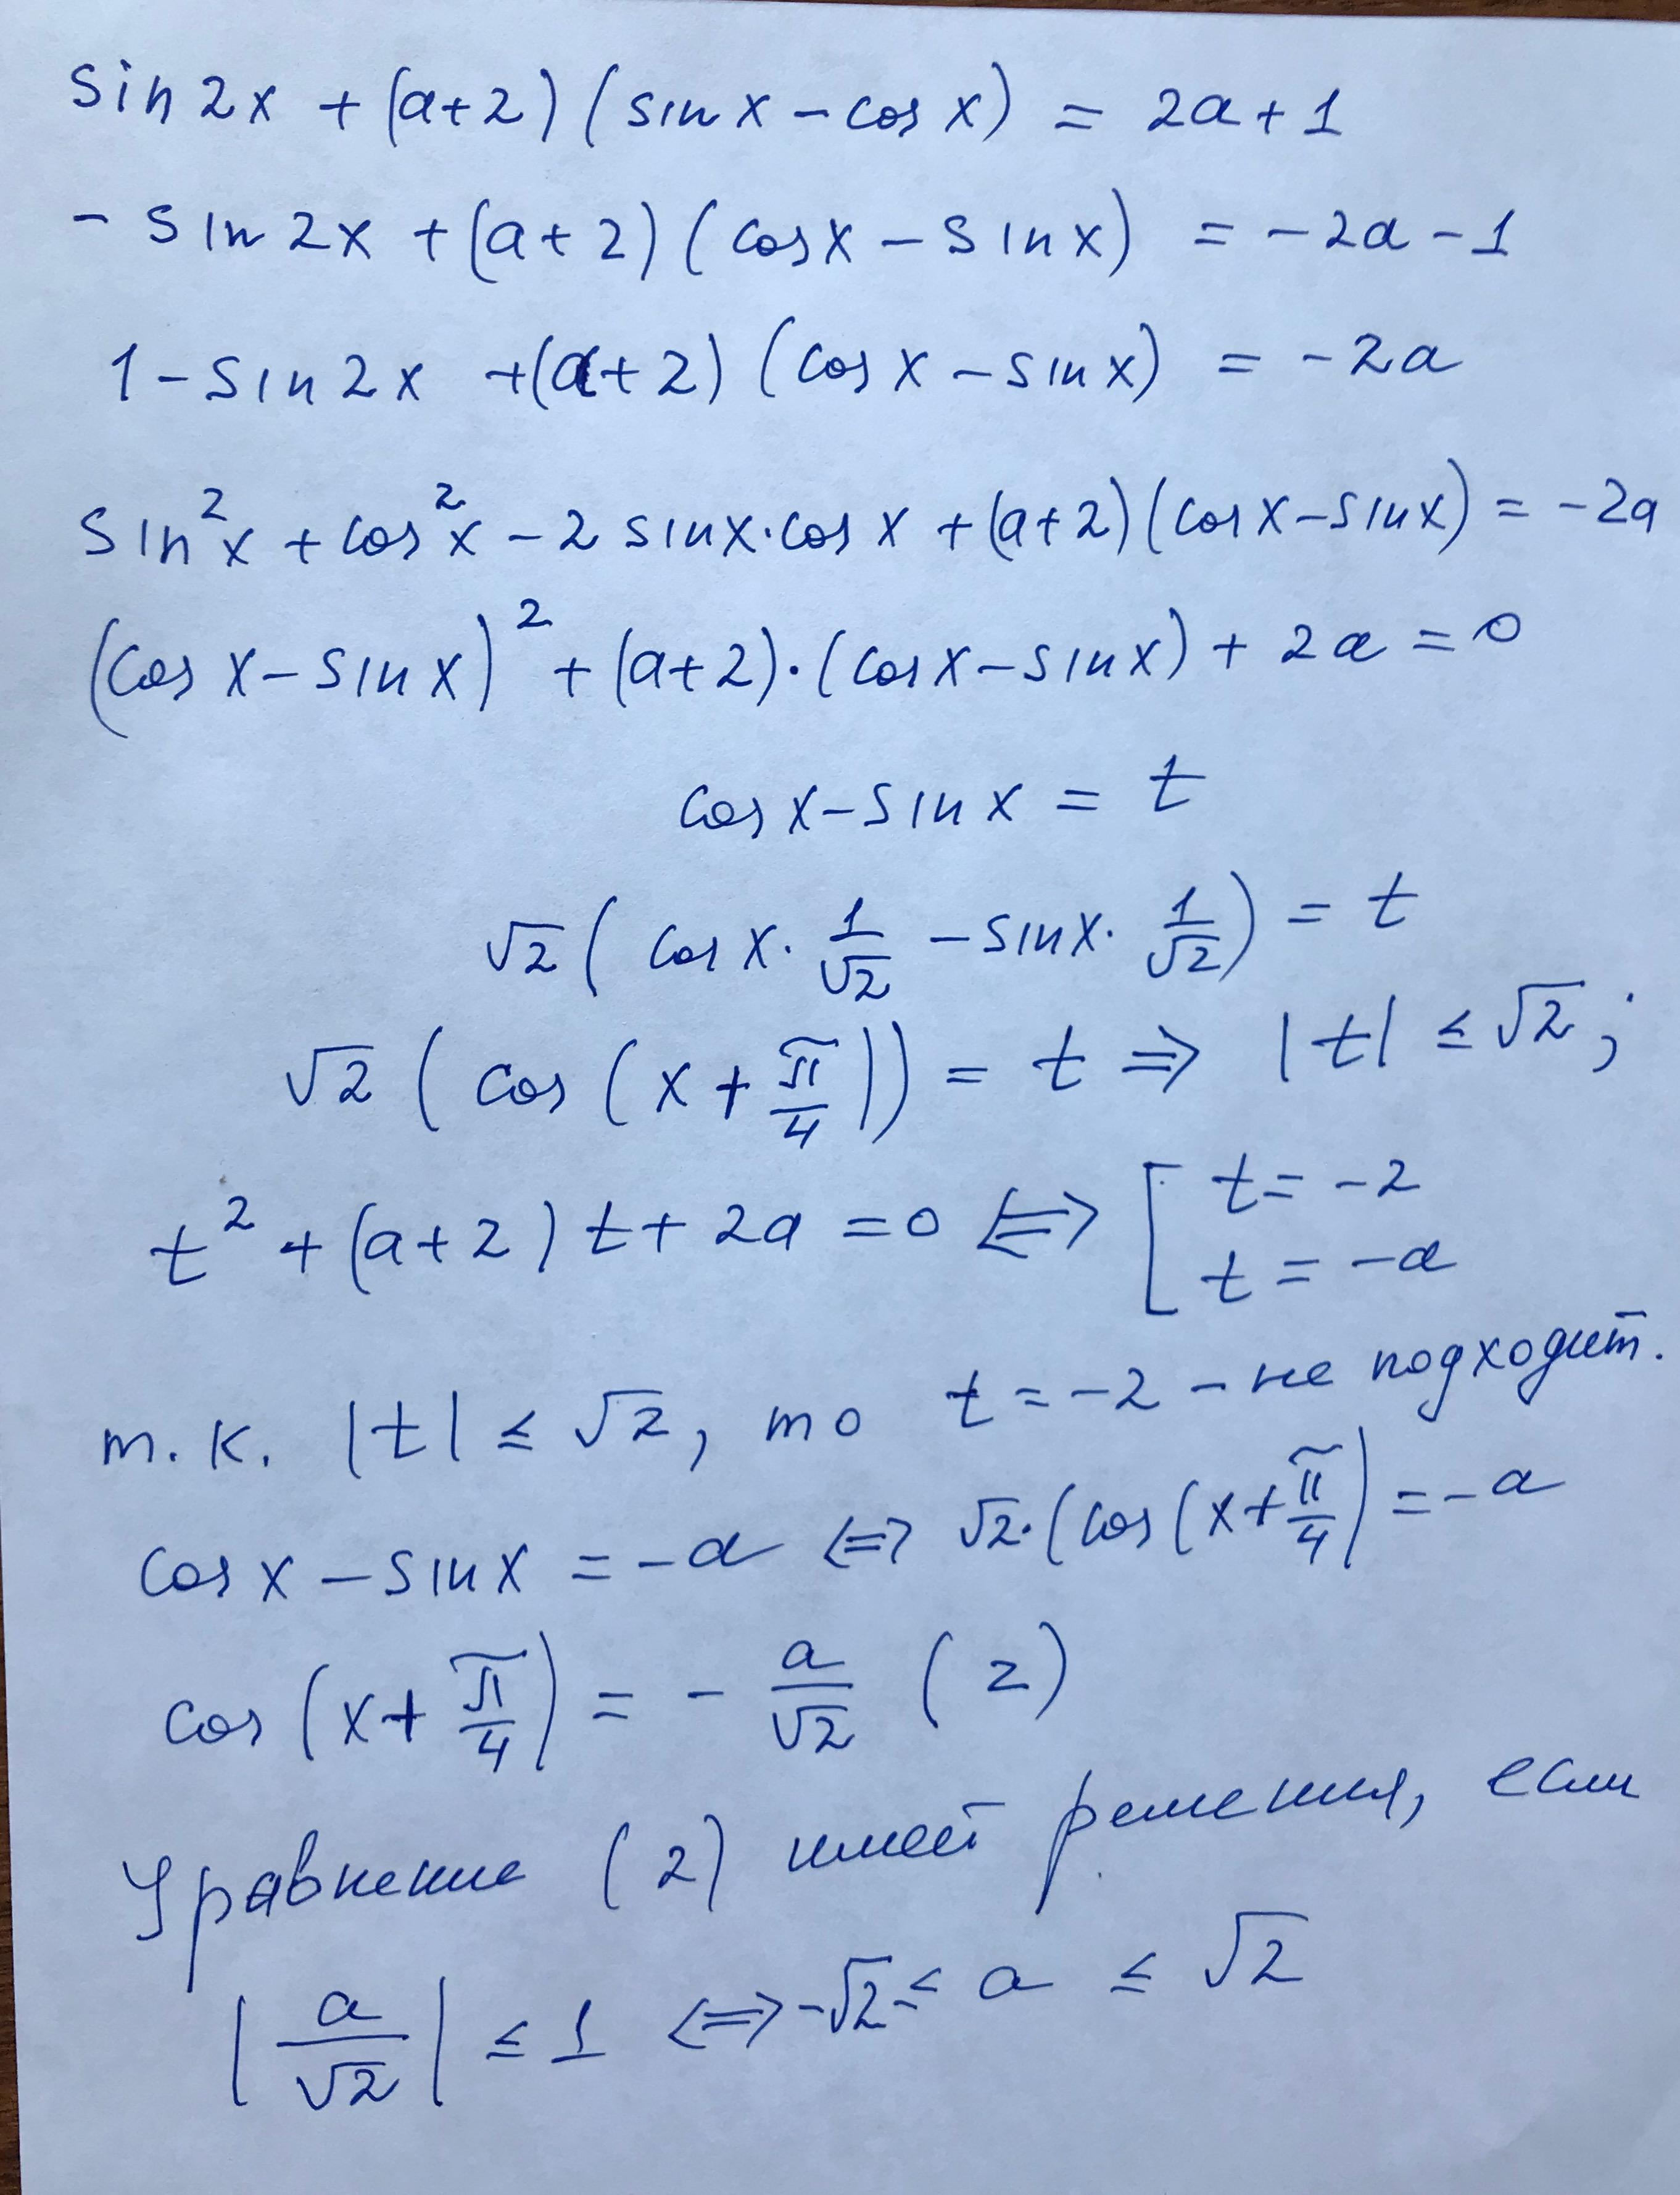 sin 2x + (a+2)(sin x – cos x) = 2a + 1
– sin 2x + (a+2)(cos x – sin x) = –2a – 1
1 – sin 2x + (a+2)(cos x – sin x) = –2a
sin²x + cos²x – 2 sin x · cos x + (a+2)(cos x – sin x) = –2a
(cos x – sin x)² + (a+2)·(cos x – sin x) + 2a = 0
cos x – sin x = t
√2 ( cos x · 1/√2 – sin x · 1/√2 ) = t
√2 ( cos ( x + π/4 )) = t ⇒ |t| ≤ √2 ;
t² + (a+2) t + 2a = 0 ⇔ [ t = –2
t = –a
т. к. |t| ≤ √2, то t = –2 – не подходит.
cos x – sin x = –a ⇔ √2·(cos (x + π/4) = –a
cos (x + π/4) = – a/√2 (2)
Уравнение (2) имеет решения, если
|a/√2| ≤ 1 ⇔ –√2 ≤ a ≤ √2